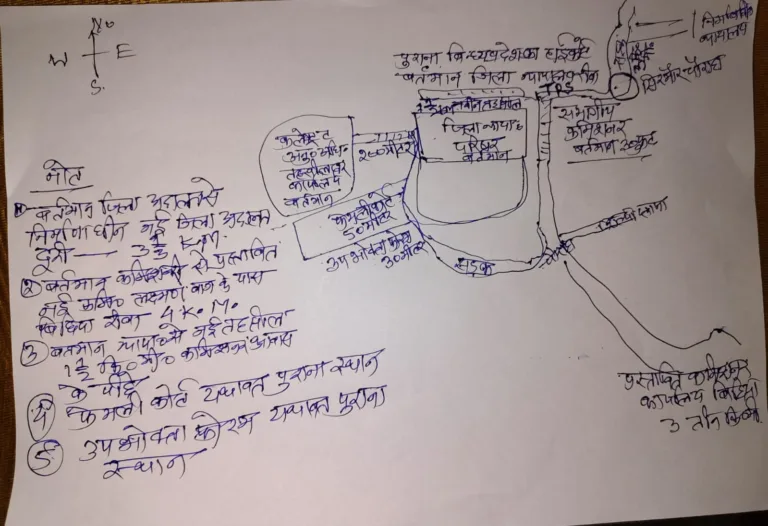 N
W E
S
पुराना विन्ध्यप्रदेश का हाईकोर्ट
वर्तमान जिला न्यायालय रीवा
T R S
सिरमौर चौराहा
न्यायालय
जिला न्याया०
परिसर
वर्तमान
संभागीय
कमिश्नर
वर्तमान
कलेक्ट्रेट
तहसीलदार
कार्यालय
वर्तमान
200 मीटर
फेमली कोर्ट
50 मीटर
उपभोक्ता फोरम
30 मीटर
सड़क
प्रस्तावित कमिश्नर
कार्यालय बिछिया
3 तीन कि०मी०
नोट
① वर्तमान जिला अदालत से
निर्माणाधीन नई जिला अदालत
दूरी — 3 1/2 K.M.
② वर्तमान कमिश्नरी से प्रस्तावित
नई कमि० लक्ष्मण बाग के पास
बिछिया रीवा 4 K.M.
③ वर्तमान न्याया० से नई तहसील
1 1/2 कि० मी० कमिश्नर आवास
के पीछे
④ फेमली कोर्ट यथावत पुराना स्थान
⑤ उपभोक्ता फोरम यथावत पुराना
स्थान